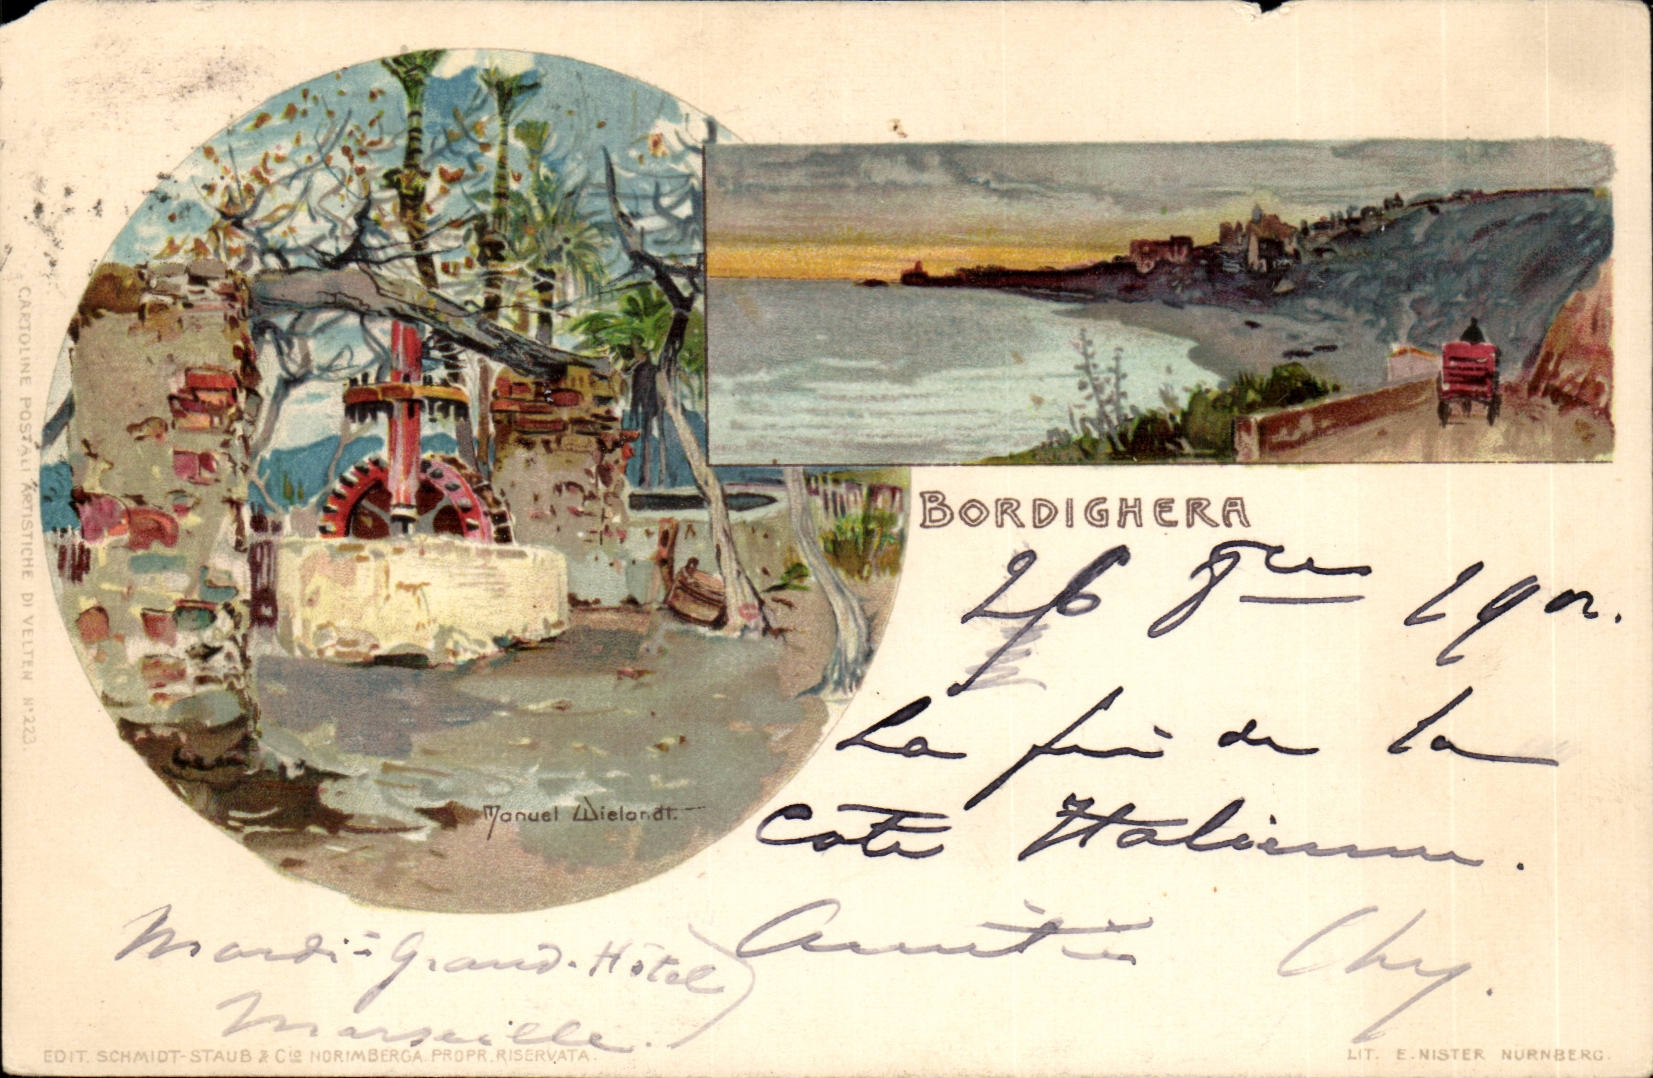 CARTOLINE POSTALI ARTISTICHE DI VELTEN Nº 223.
Manuel Wielandt.
BORDIGHERA
26 8bre 1902.
La fin de la
Cote Italienne.
Amitiés Chy.
Mardi = Grand-Hôtel
Marseille.
EDIT. SCHMIDT-STAUB & Cio NORIMBERGA. PROPR. RISERVATA.
LIT. E. NISTER NÜRNBERG.